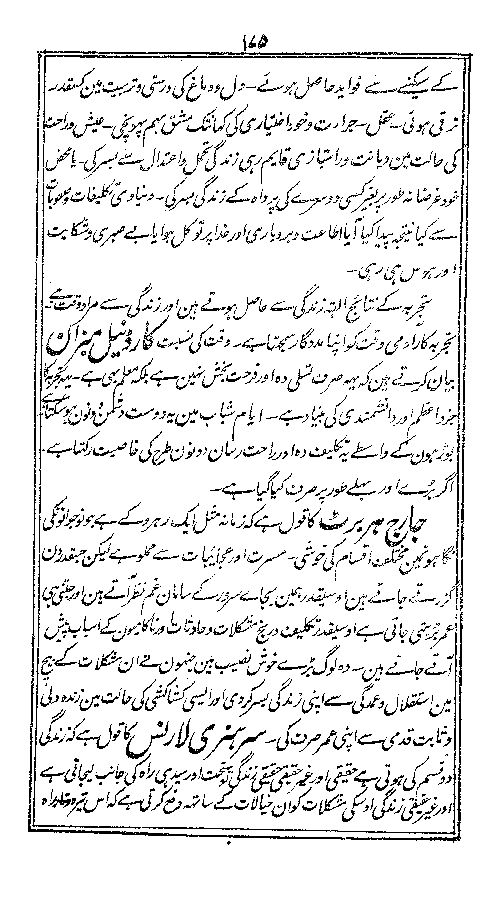 ۱۶۵
کے سیکھنے سے فواید حاصل ہوئے۔ دل و دماغ کی درستی و تربیت مین کسقدر
ترقی ہوئی۔ عقل۔ جرارت و خود اختیاری کی کہانتک مشق بہم پہونچی۔ عیش و راحت
کی حالت مین دیانت و راستبازی قایم رہی زندگی تحمل و اعتدال سے بسر کی۔ یا محض
خود غرضانہ طور پر بغیر کسی دوسرے کی پرواہ کے زندگی بسر کی۔ دنیاوی تکلیفات و صعوبات
سے کیا نتیجہ پیدا کیا آیا اطاعت و بردباری اور خدا پر توکل ہوا یا بے صبری و شکایت
اور ہوس ہی رہی۔
تجربہ کے نتائج البتہ زندگی سے حاصل ہوتے ہین اور زندگی سے مراد وقت ہے
تجربہ کار آدمی وقت کو اپنا مددگار سمجہتا ہے۔ وقت کی نسبت کارڈنیل میزان
بیان کرتے ہین کہ یہہ صرف تسلی دہ اور فرحت بخش نہین ہے بلکہ معلم بہی ہے۔ یہہ تجربہ کا
جزو اعظم اور دانشمندی کی بنیاد ہے۔ ایام شباب مین یہ دوست و دشمن دونون ہو سکتا ہے
بوڑہون کے واسطے یہ تکلیف دہ اور راحت رسان دونون طرح کی خاصیت رکہتا ہے۔
اگر بُرے اور بہلے طور پر صرف کیا گیا ہے۔
جارج ہربرٹ کا قول ہے کہ زمانہ مثل ایک رہرو کے ہے جو نوجوانونکی
نگاہونمین مختلف اقسام کی خوشی۔ مسرت اور عجائبات سے مملو ہے لیکن جسقدر دن
گزرتے جاتے ہین اوسیقدر ہمین بجائے سرور کے سامان غم نظر آتے ہین اور جتنی ہی
عمر بڑہتی جاتی ہے اوسیقدر تکلیف و رنج مشکلات و حادثات و ناکامیون کے اسباب پیش
آتے جاتے ہین۔ وہ لوگ بڑے خوش نصیب ہین جنہون نے ان مشکلات کے بیچ
مین استقلال و عمدگی سے اپنی زندگی بسر کردی اور ایسی کشاکشی کی حالت مین زندہ دلی
و ثابت قدمی سے اپنی عمر صرف کی۔ سر ہنری لارنس کا قول ہے کہ زندگی
دو قسم کی ہوتی ہے حقیقی اور غیر حقیقی حقیقی زندگی تو سخت اور سیدہی راہ کی جانب لیجاتی ہے
اور غیر حقیقی زندگی اوسکی مشکلات کو ان خیالات کے ساتہہ دفع کرتی ہے کہ اس تیرہ و تار راہ